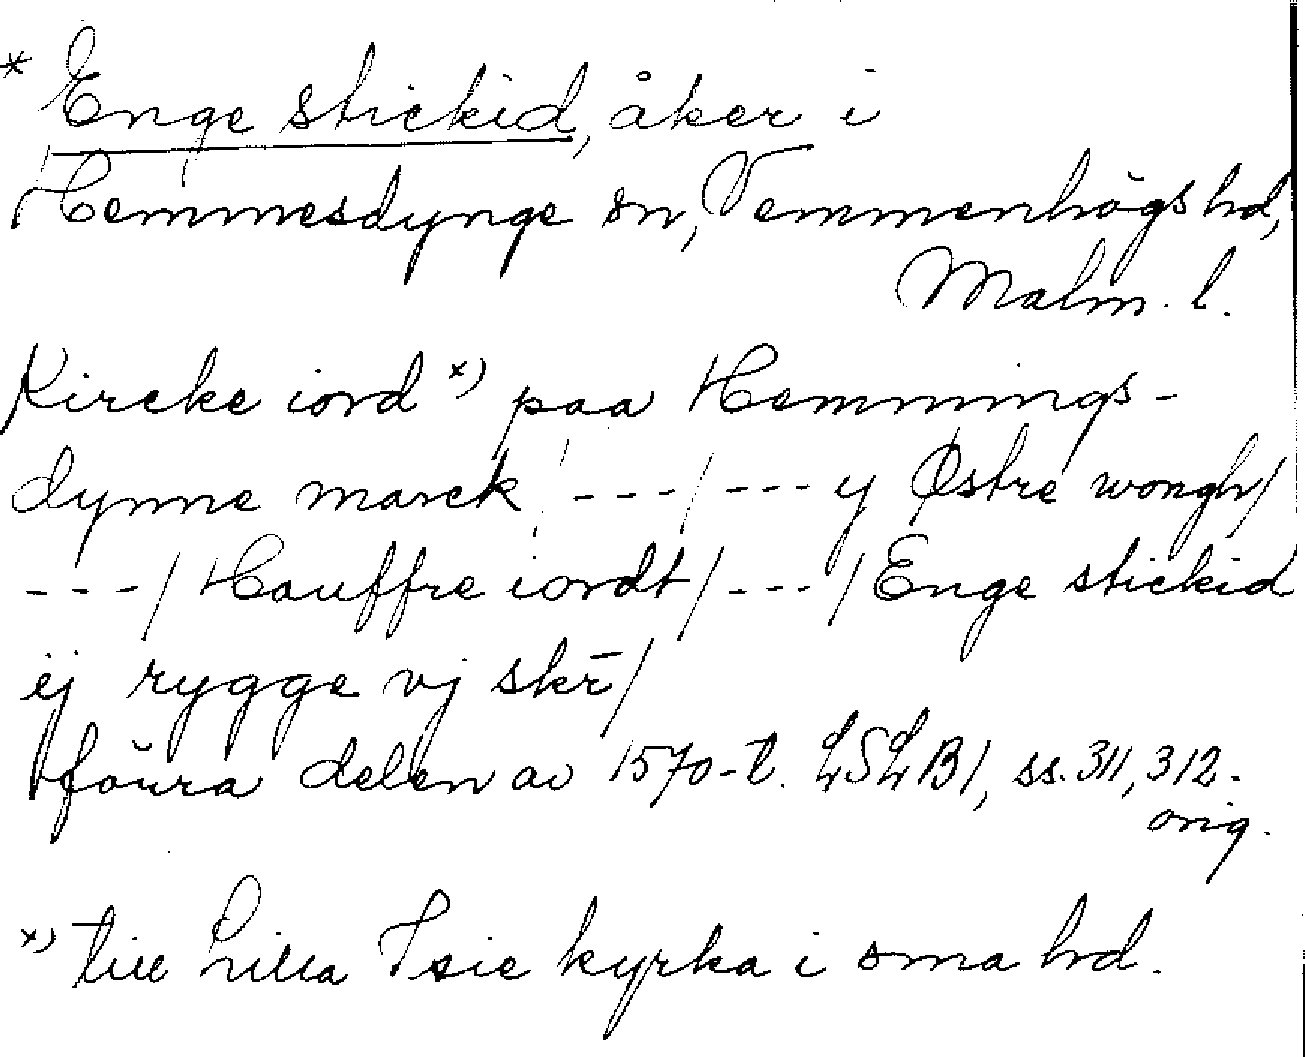 * Enge stickid, åker i
Hemmesdynge sn, Vemmenhögs hd,
Malm. l.
Kircke iord x) paa Hemmings-
dynne marck / --- / --- y Østre wongh /
--- / Hauffre iordt / --- / Enge stickid
ij rygge vj skr̄ /
förra delen av 1570-t. LSLB 1, ss. 311, 312.
orig.
x) till Lilla Isie kyrka i sma hd.